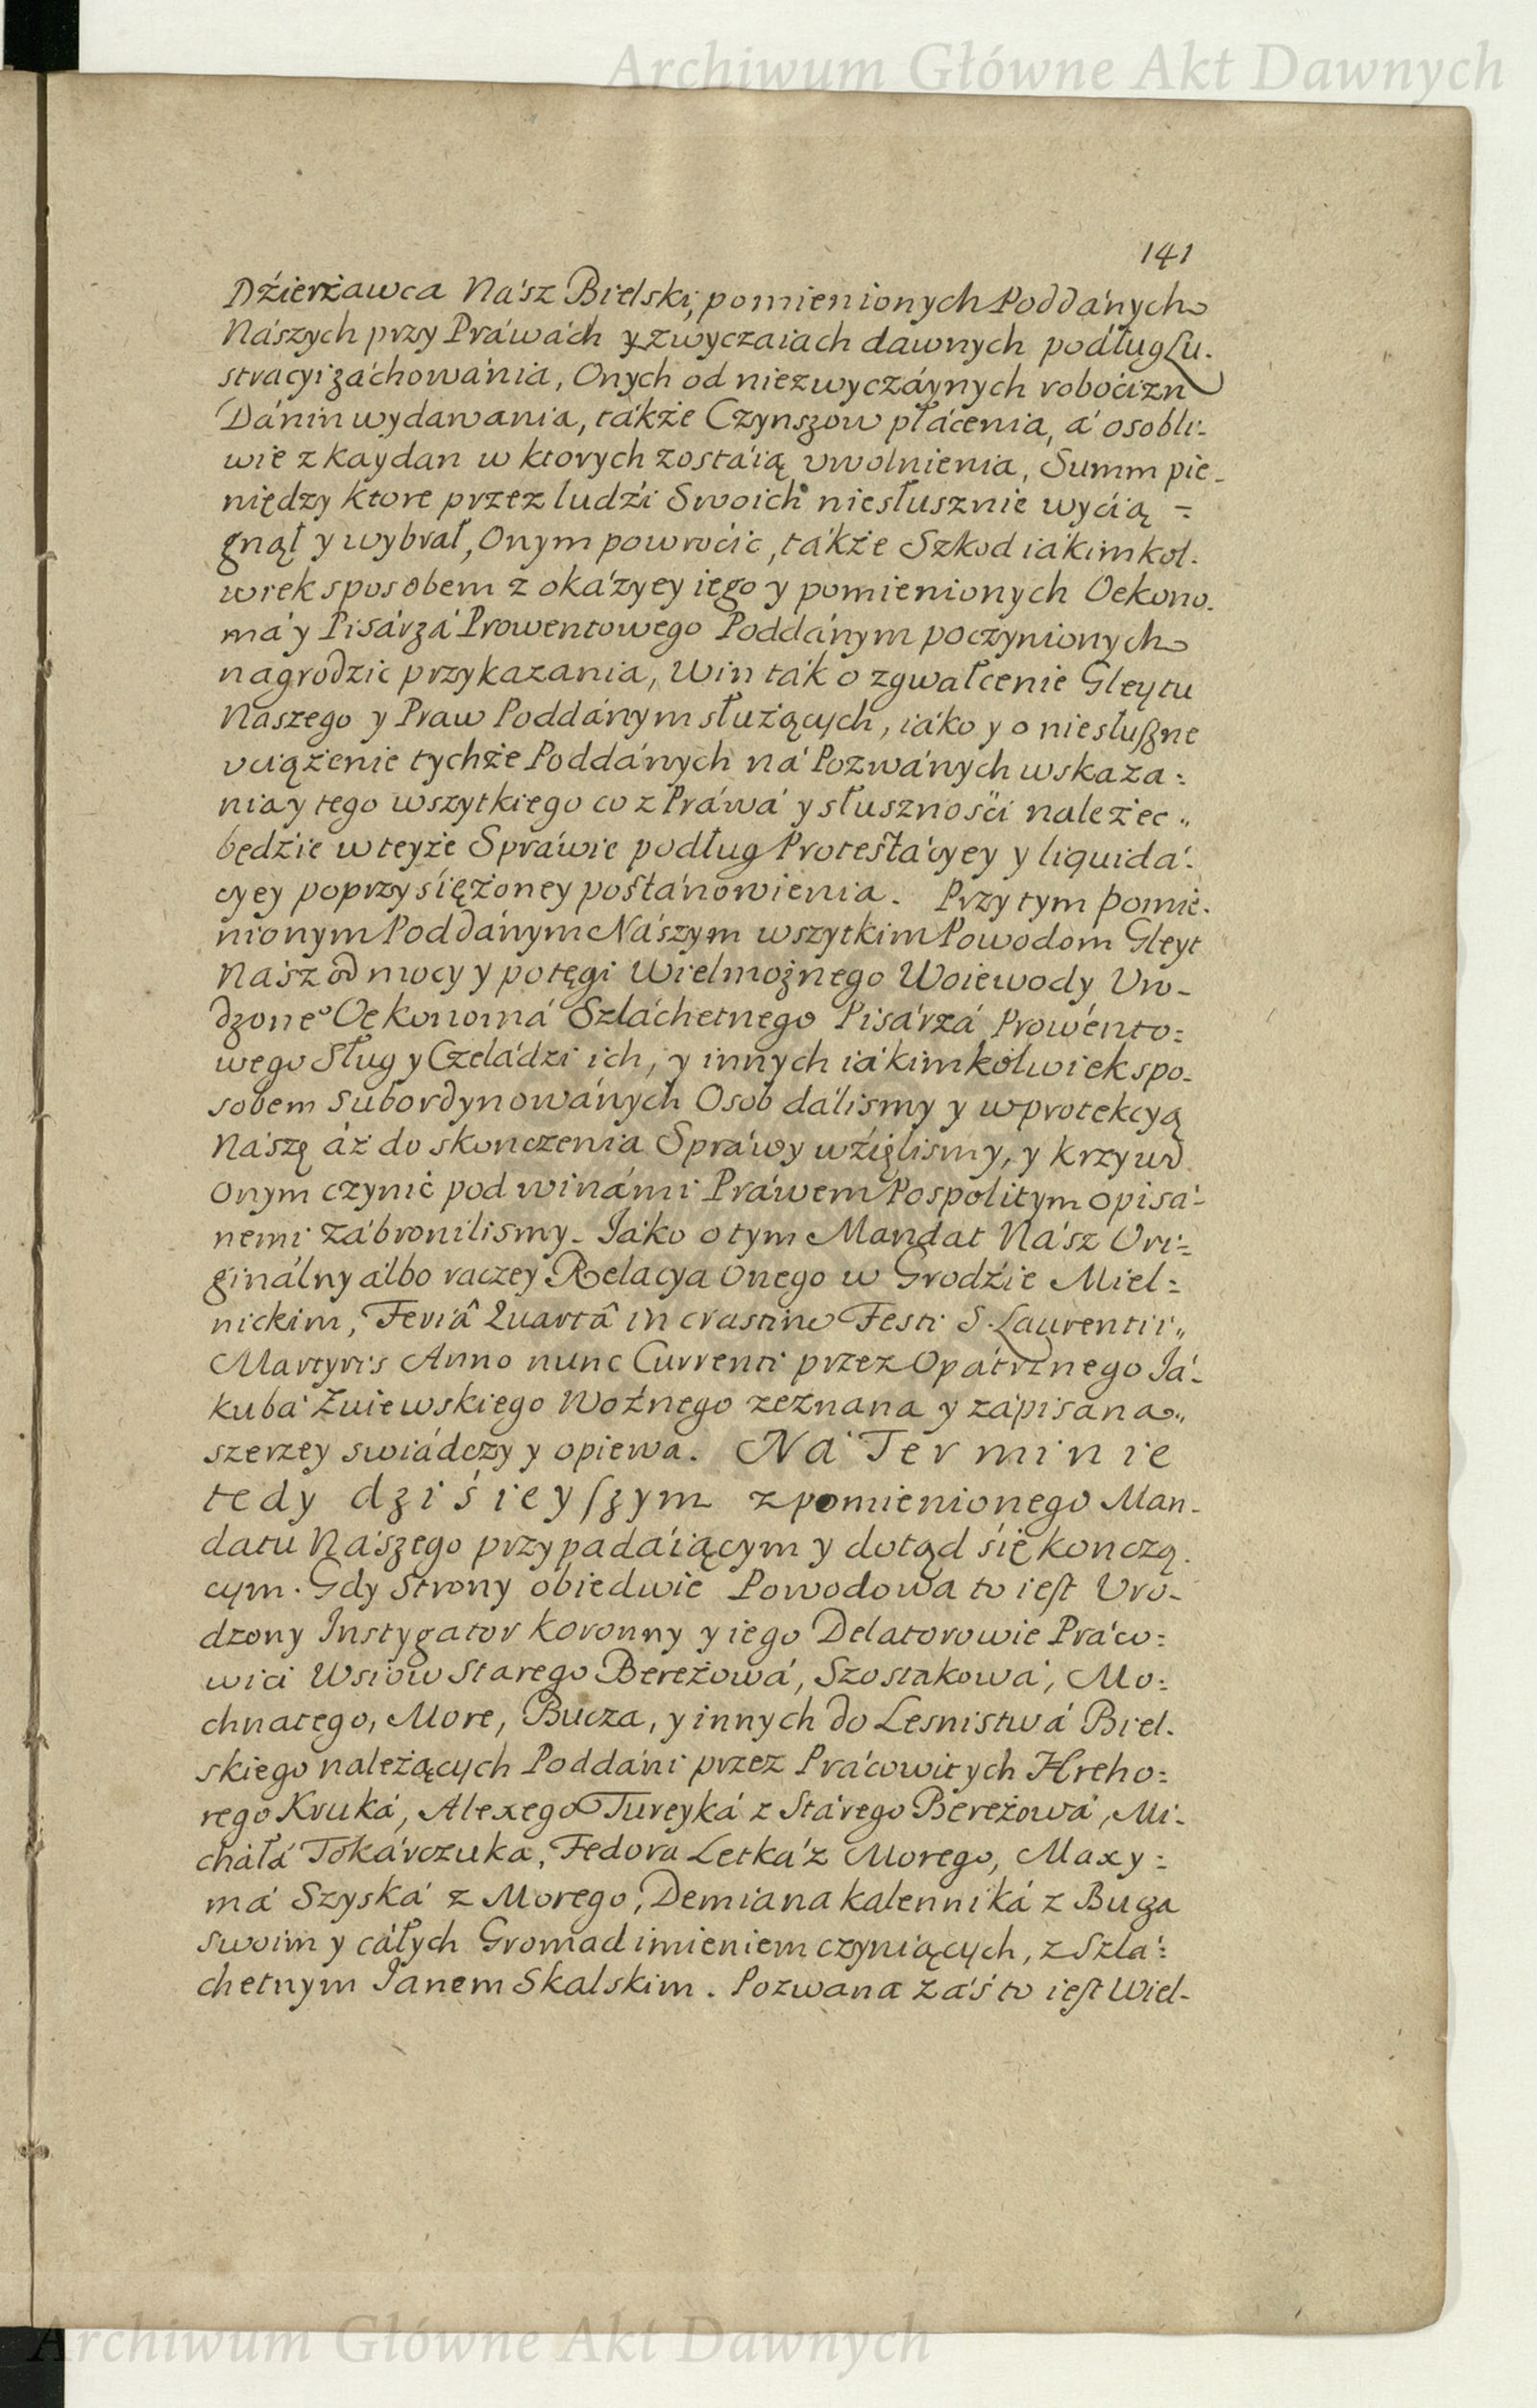 Archiwum Główne Akt Dawnych
141
Dźierżawca Nász Bielski, pomienionych Poddánych
Nászych przy Práwách y zwyczaiach dawnych podług Lu-
stracyi záchowánia, Onych od niezwyczáynych robocizn
Dánin wydawania, tákże Czynszow płácenia, á osobli-
wie z kaydan w ktorych zostáią vwolnienia, Summ pie-
niędzy ktore przez ludźi Swoich niesłusznie wycią =
gnął y wybrał, Onym powrocic, tákże Szkod iákimkol-
wiek sposobem z okázyey iego y pomienionych Oekono-
má y Pisárzá Prowentowego Poddánym poczynionych
nagrodzic przykazania, Win ták o zgwałcenie Gleytu
Naszego y Praw Poddánym służących, iáko y o niesłuszne
vciążenie tychże Poddánych ná Pozwánych wskaza =
nia y tego wszytkiego co z Práwá y słusznośći należec „
będzie w teyże Spráwie podług Protestácyey y liquidá-
cyey poprzyśiężoney postánowienia. Przy tym pomie-
nionym Poddánym Nászym wszytkim Powodom Gleyt
Nász od mocy y potęgi Wielmożnego Woiewody Vro-
dzone° Oekonomá Szláchetnego Pisárzá Prowento =
wego Sług y Czeládzi ich, y innych iákimkolwiek spo-
sobem subordynowánych Osob dálismy y w protekcyą
Nászę áż do skonczenia Spráwy wźięlismy, y krzywd
onym czynić pod winámi Práwem Pospolitym opisá-
nemi zábronilismy. Jáko o tym Mandat Nász Ori =
ginálny álbo raczey Relacya Onego w Grodźie Miel =
nickim, Feriâ Quartâ in crastino Festi S. Laurentii „
Martyris Anno nunc Currenti przez Opátrznego Já-
kubá Żuiewskiego Woźnego zeznana y zápisana „
szerzey swiádczy y opiewa. Ná Terminie
tedy dziśieyszym z pomienionego Man-
datu Nászego przypadáiącym y dotąd się konczą-
cym. Gdy Strony obiedwie Powodowa to iest Vro-
dzony Instygator Koronny y iego Delatorowie Práco =
wici Wsiow Starego Bereżowá, Szostakowá, Mo =
chnatego, More, Bucza, y innych do Lesnistwá Biel-
skiego należących Poddáni przez Prácowitych Hreho =
rego Kruká, Alexego Tureyká z Stárego Bereżowá, Mi-
cháłá Tokárczuka, Fedora Letká z Morego, Maxy =
má Szyská z Morego, Demiana Kalenniká z Buza
swoim y cáłych Gromad imieniem czyniących, z Szlá =
chetnym Janem Skalskim. Pozwana záś to iest Wiel-
Archiwum Główne Akt Dawnych